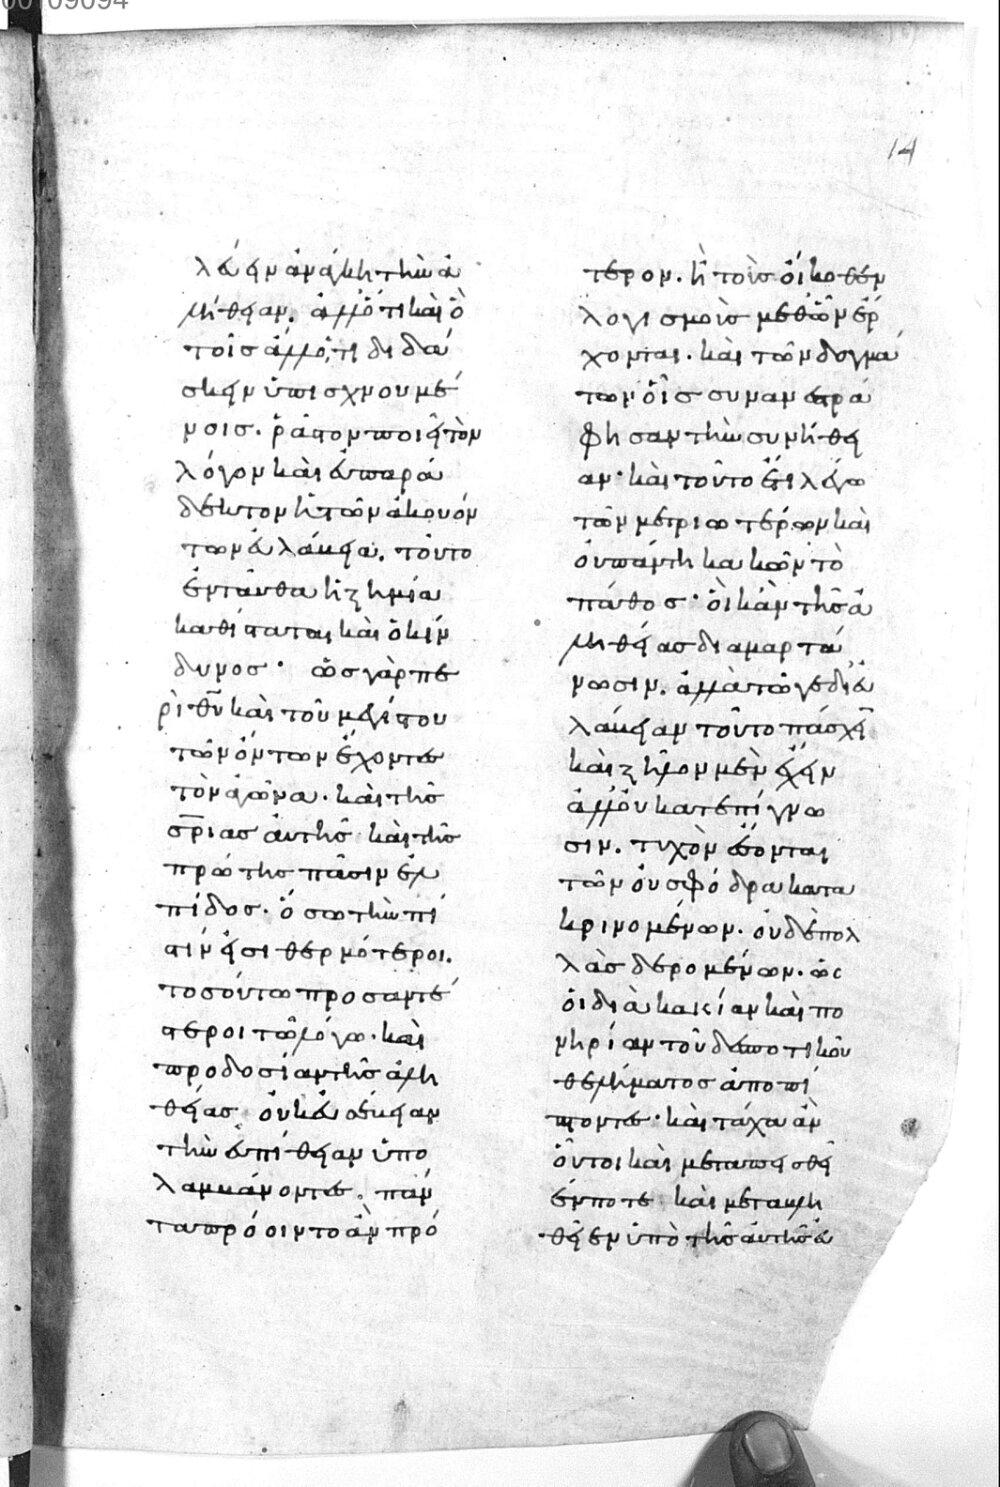 00109094
14
λέειν ἀνάγκη τὴν ἀ
λήθειαν. ἀλλ' ὅτι καὶ ὁ
τοῖς ἄλλό τι διδά
σκειν ὑπισχνουμέ
νοις. ῥᾶστον ποιεῖ τὸν
λόγον καὶ εὐπαρά
δεκτον ἡ τῶν ἀκουόν
των εὐλάβεια. τοῦτο
ἐνταῦθα ἡ ζημία
καθίσταται καὶ ὁ κίν
δυνος· ὡς γὰρ πε
ρὶ θῦ καὶ τοῦ μεγίστου
τῶν ὄντων ἔχοντες
τὸν ἀγῶνα. καὶ τῆς
σρίας αὐτῆς καὶ τῆς
πρώτης πᾶσιν ἐλ
πίδος. ὅσω τὴν πί
στιν εἰσὶ θερμότεροι.
τοσούτω προσαντέ
στεροι τῶ λόγω. καὶ
προδοσίαν τῆς ἀλη
θείας οὐκ εὐσέβειαν
τὴν εὐπείθειαν ὑπο
λαμβάνοντες. πάν
τα πρόοιντο ἂν πρό
τερον. ἢ τοὺς οἴκοθεν
λογισμοὺς μεθ' ὧν ἔρ
χονται. καὶ τῶν δογμά
των οἷς συνανεστρά
φησαν τὴν συνήθει
αν· καὶ τοῦτο ἔτι λέγω
τῶν μετριωτέρων καὶ
οὐ πάντη κακῶν τὸ
πάθος· οἳ κἂν τῆς ἀ
ληθείας διαμαρτά
νωσιν. ἀλλὰ τῶ γε δι' εὐ
λάβειαν τοῦτο πάσχει
καὶ ζῆλον μὲν ἔχειν
ἀλλ' οὐ κατ' ἐπίγνω
σιν. τυχὸν ἔσονται
τῶν οὐ σφόδρα κατα
κρινομένων. οὐδὲ πολ
λὰς δερομένων. ὡς
οἱ διὰ κακίαν καὶ πο
νηρίαν τοῦ δεσποτικοῦ
θελήματος ἀποπί
πτοντες· καὶ τάχα ἂν
οὗτοι καὶ μεταπεισθεῖ
έν ποτε καὶ μεταβλη
θεῖεν ὑπὸ τῆς αὐτῆς εὐ